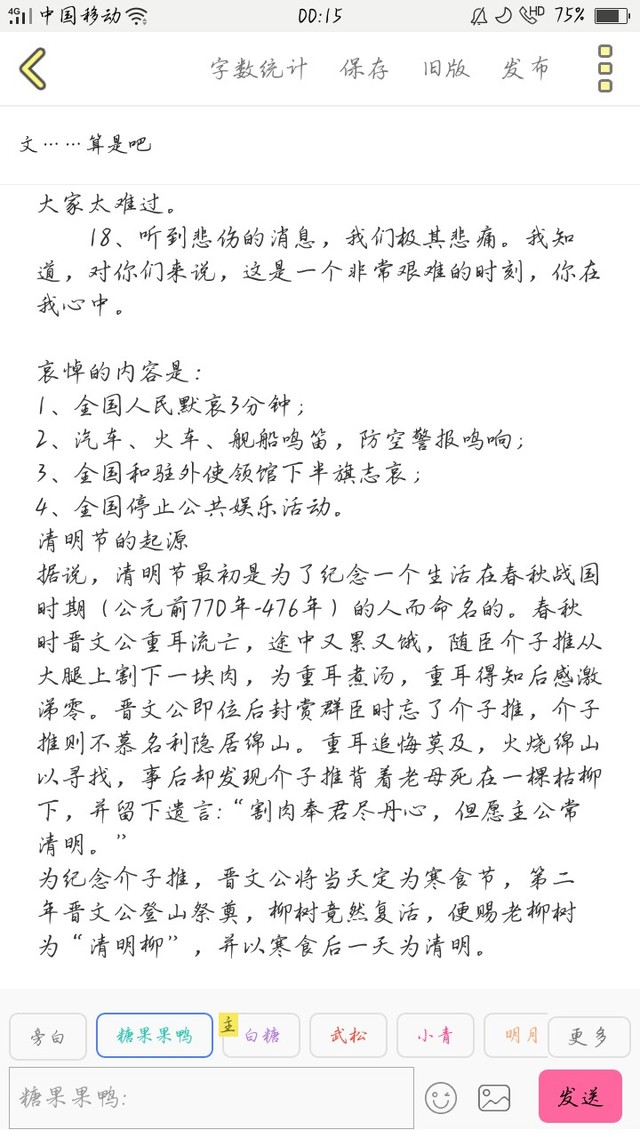 4G 中国移动 00:15 HD 75%
字数统计 保存 旧版 发布
文……算是吧
大家太难过。
18、听到悲伤的消息，我们极其悲痛。我知
道，对你们来说，这是一个非常艰难的时刻，你在
我心中。
哀悼的内容是：
1、全国人民默哀3分钟；
2、汽车、火车、舰船鸣笛，防空警报鸣响；
3、全国和驻外使领馆下半旗志哀；
4、全国停止公共娱乐活动。
清明节的起源
据说，清明节最初是为了纪念一个生活在春秋战国
时期（公元前770年-476年）的人而命名的。春秋
时晋文公重耳流亡，途中又累又饿，随臣介子推从
大腿上割下一块肉，为重耳煮汤，重耳得知后感激
涕零。晋文公即位后封赏群臣时忘了介子推，介子
推则不慕名利隐居绵山。重耳追悔莫及，火烧绵山
以寻找，事后却发现介子推背着老母死在一棵枯柳
下，并留下遗言：“割肉奉君尽丹心，但愿主公常
清明。”
为纪念介子推，晋文公将当天定为寒食节，第二
年晋文公登山祭奠，柳树竟然复活，便赐老柳树
为“清明柳”，并以寒食后一天为清明。
旁白 糖果果鸭 主 白糖 武松 小青 明月 更多
糖果果鸭： 发送